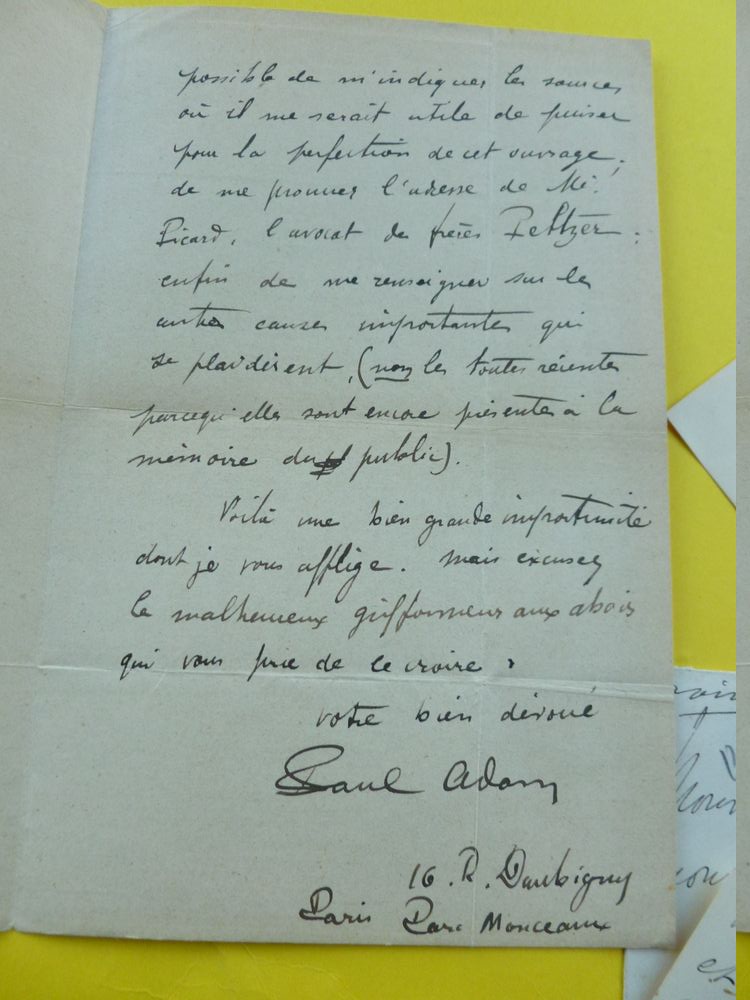 possible de m'indiquer les sources
où il me serait utile de puiser
pour la perfection de cet ouvrage;
de me procurer l'adresse de Me.
Picard, l'avocat des frères Peltzer;
enfin de me renseigner sur les
autres causes importantes qui
se plaidèrent, (non les toutes récentes
parcequ'elles sont encore présentes à la
mémoire du public).
Voilà une bien grande importunité
dont je vous afflige. Mais excusez
le malheureux griffonneur aux abois
qui vous prie de le croire,
votre bien dévoué
Paul Adam
16. R. Daubigny
Paris Parc Monceaux